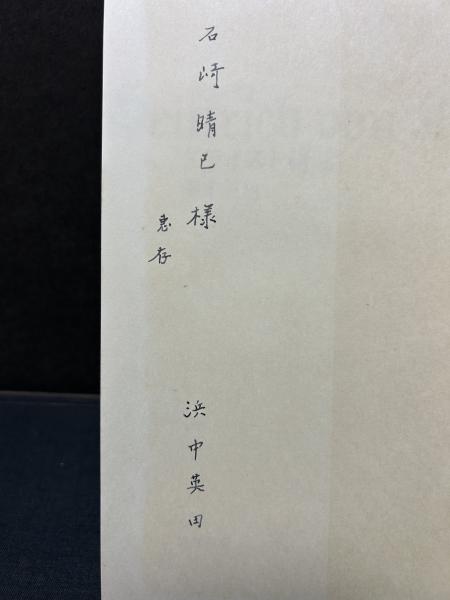 石崎晴己様
恵存
浜中英田